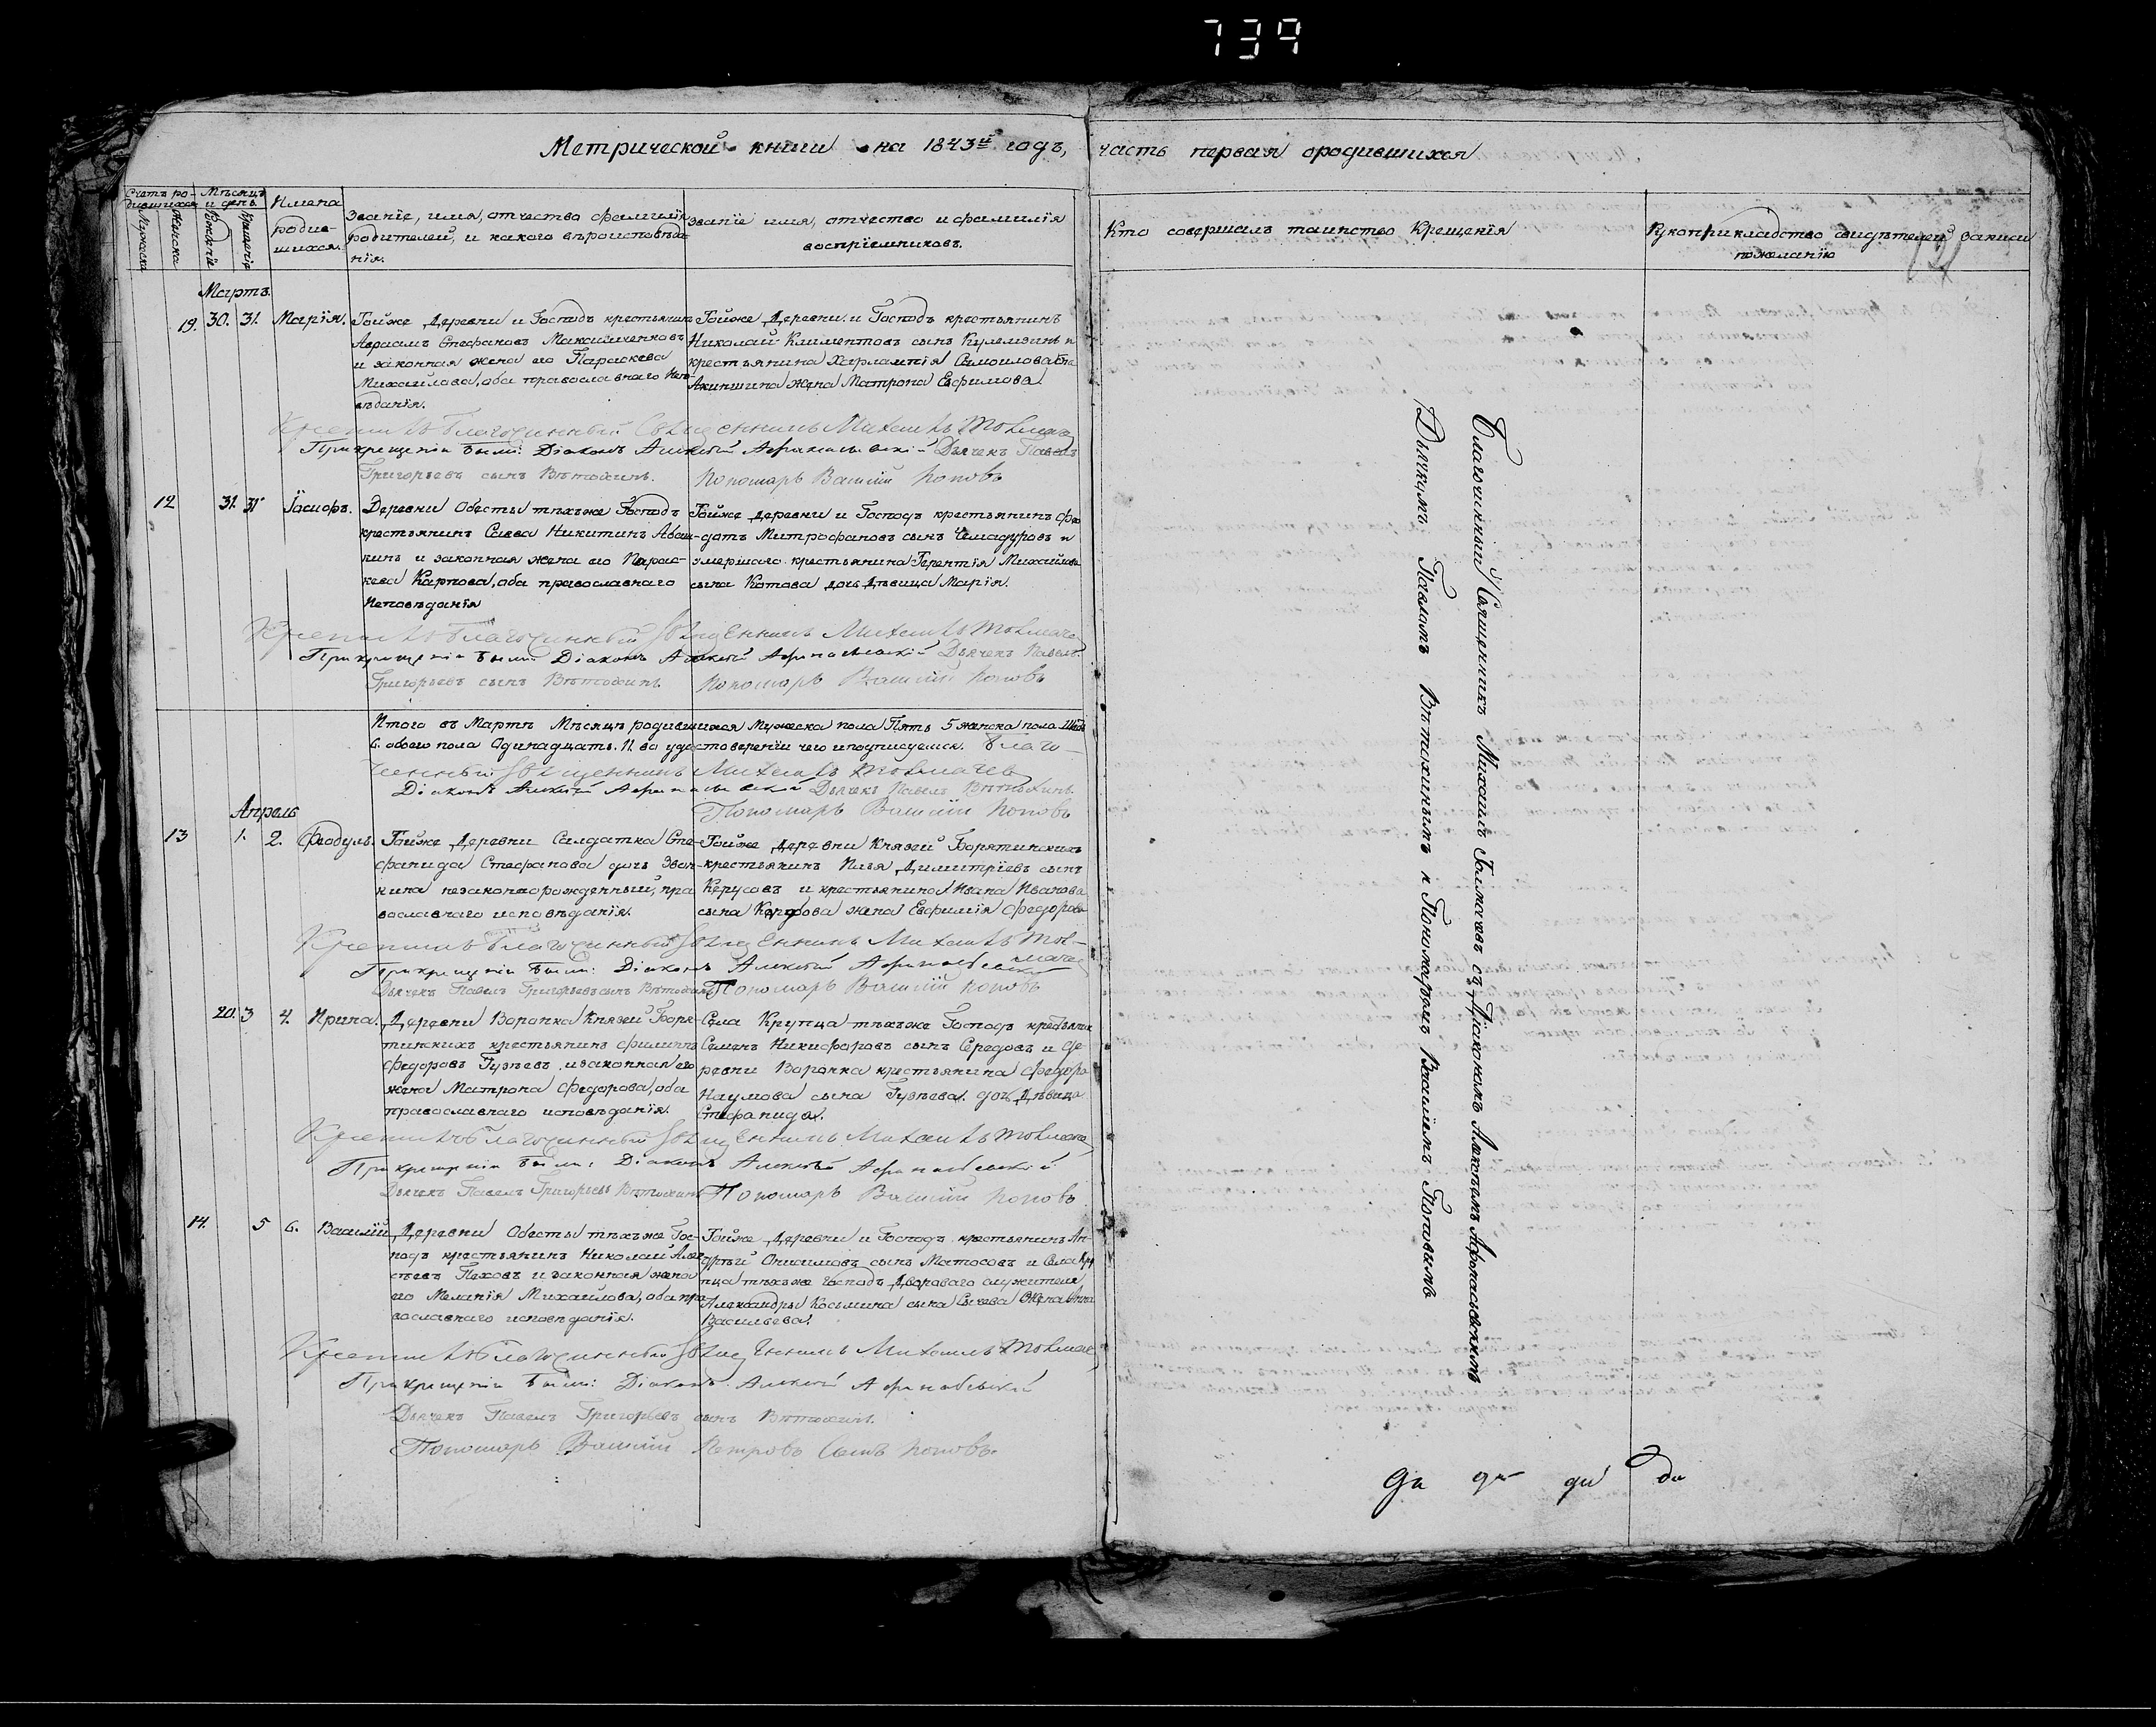 739
Метрической книги на 1843й годъ, часть первая ородившихся
Счетъ ро-
дившихся
Мѣсяцъ
и день
Имена
родив-
шихся.
Мужеска
Женска
Рожденіе
Крещеніе
Званіе, имя, отчество фамилія
родителей, и какого вѣроисповѣда
нія.
Званіе имя, отчество и фамилія
воспріемниковъ.
Кто совершалъ таинство Крещенія
Рукоприкладство свидѣтелей записи
пожеланію
Мартъ.
19. 30. 31. Марія.
Тойже Деревни и Господъ крестьянинъ
Авраамъ Стефановъ
и законная жена его Параскева
Михаилова, оба православнаго Испо-
вѣданія.
Тойже Деревни и Господъ крестьянинъ
Николай Климентовъ сынъ и
крестьянина Харлампія Самоилова
Акиншина жена Матрона Евфимова
Крестилъ Благочинный Священникъ Михаилъ Толмачев
Прикрещеніи были: Діаконъ Алексѣй Афанасьевскій Дьячекъ Павелъ
Григорьевъ сынъ Вѣтохинъ. Пономарь Василій Поповъ
12 31. 31 Іосифъ.
Деревни Обесты тѣхъже Господъ
крестьянинъ Савва Никитинъ Аваш-
кинъ и законная жена его Парас-
кева Карпова, оба православнаго
Исповѣданія
Тойже деревни и Господъ крестьянинъ Фео
дотъ Митрофановъ сынъ Чемадуровъ и
умершаго крестьянина Терентія Михайлова
сына Котова дочь Дѣвица Марія.
Крестилъ Благочинный Священникъ Михаилъ Толмачев
Прикрещеніи были Діаконъ Алексѣй Афанасьевскій Дьячекъ Павелъ
Григорьевъ сынъ Вѣтохинъ. Пономарь Василій Поповъ
Итого въ Мартѣ Мѣсяцѣ родившихся Мужеска пола Пять 5 женска пола Шесть
6. обоего пола Одинадцать. 11. во удостовереніи чего иподписуемся. Благо-
чинный Священникъ Михаилъ Толмачев
Діаконъ Алексѣй Афанасьевскій Дьячекъ Павелъ Вѣтохинъ.
Пономарь Василій Поповъ
Апрель
13 1. 2. Феодулъ.
Тойже Деревни Салдатка Сте-
фанида Стефанова дочь
кина незаконнорожденный, пра
вославнаго исповѣданія.
Тойже деревни Князей Борятинскихъ
крестьянинъ Илья Димитріевъ сынъ
Керусовъ и крестьянина Ивана Иванова
сына жена Евфимія Федорова
Крестилъ Благочинный Священникъ Михаилъ Тол-
мачев
Прикрещеніи были: Діаконъ Алексѣй Афанасьевскій
Дьячекъ Павелъ Григорьевъ сынъ Вѣтохинъ Пономарь Василій Поповъ
20. 3 4. Ирина.
Деревни Воронка Князей Боря-
тинскихъ крестьянинъ Филиппъ
Федоровъ Гузѣевъ, изаконная его
жена Матрона Федорова, оба
православнаго исповѣданія.
Села Крупца тѣхъже Господъ крестьянинъ
Семенъ Никифоровъ сынъ Середовъ и де-
ревни Воронка крестьянина Федора
Наумова сына Гузѣева дочь Дѣвица
Стефанида.
Крестилъ Благочинный Священникъ Михаилъ Толмачев
Прикрещеніи были: Діаконъ Алексѣй Афанасьевскій
Дьячекъ Павелъ Григорьевъ Вѣтохинъ Пономарь Василій Поповъ
14. 5 6. Василій
Деревни Обесты тѣхъже Гос-
подъ крестьянинъ Николай Алек
сѣевъ Пеховъ и законная жена
его Меланія Михаилова, оба пра
вославнаго исповѣданія.
Тойже Деревни и Господъ крестьянинъ Ан-
дрѣй Онисимовъ сынъ Матосовъ и Села Кру
пца тѣхъже господъ Двороваго служителя
Александры Косьмина сына Сычева Жена Анна
Васильева.
Крестилъ Благочинный Священникъ Михаилъ Толмачев
Прикрещеніи были: Діаконъ Алексѣй Афанасьевскій
Дьячекъ Павелъ Григорьевъ сынъ Вѣтохинъ.
Пономарь Василій Петровъ Сынъ Поповъ.
Благочинный Священникъ Михаилъ Толмачевъ съ Діакономъ Алексѣемъ Афанасьевскимъ
Дьячкомъ Павломъ Вѣтохинымъ и Пономаремъ Василіемъ Поповымъ